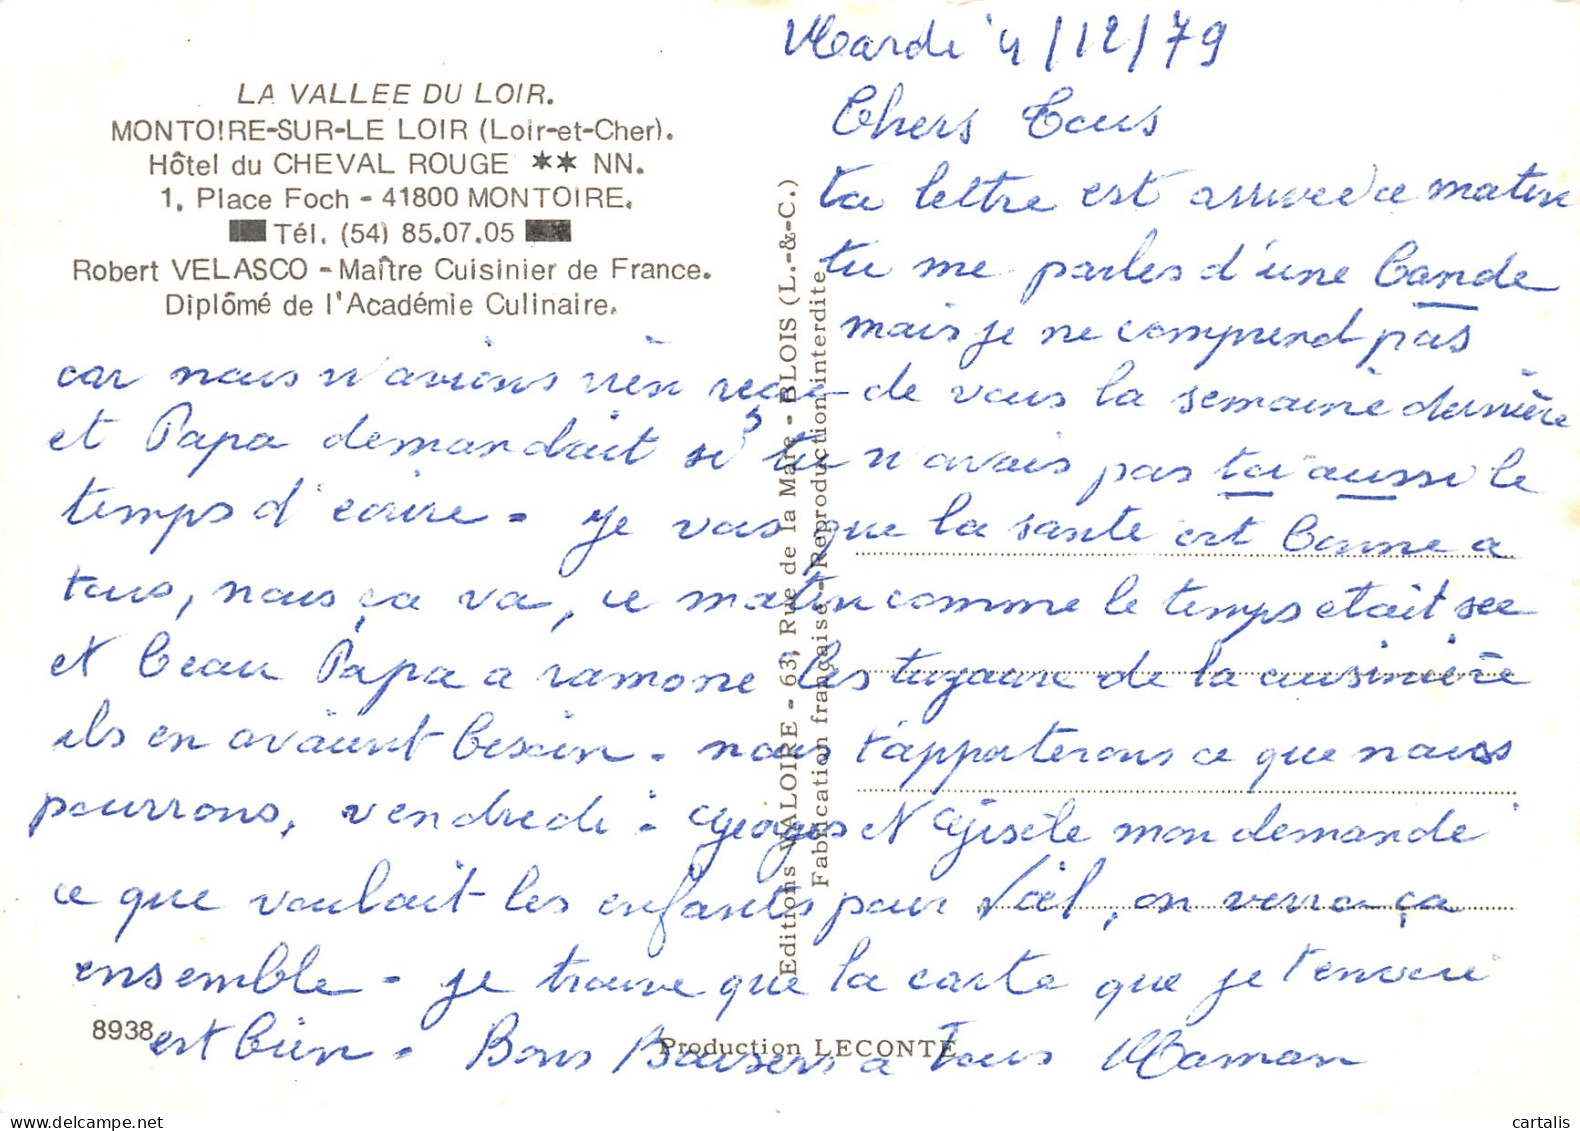 LA VALLEE DU LOIR.
MONTOIRE-SUR-LE LOIR (Loir-et-Cher).
Hôtel du CHEVAL ROUGE ★★ NN.
1, Place Foch - 41800 MONTOIRE.
Tél. (54) 85.07.05
Robert VELASCO - Maître Cuisinier de France.
Diplômé de l'Académie Culinaire.
Mardi 4/12/79
Chers Tous
ta lettre est arrivée ce matin
tu me parles d'une bande
mais je ne comprend pas
car nous n'avions rien reçu de vous la semaine dernière
et Papa demandait si tu n'avais pas toi aussi le
temps d'ecrire - je vois que la santé est bonne a
tous, nous ça va, ce matin comme le temps etait sec
et beau Papa a ramoné les tuyaux de la cuisinière
ils en avaient besoin - nous t'apporterons ce que nous
pourrons, vendredi - Georges et Gisèle mon demandé
ce que voulait les enfants pour Noël, on verra ça
ensemble - je trouve que la carte que je t'envoie
est bien - Bons Baisers a Tous Maman
Editions VALOIRE - 63, Rue de la Mare - BLOIS (L.-&-C.)
Fabrication française - Reproduction interdite
8938
Production LECONTE
cartalis.com